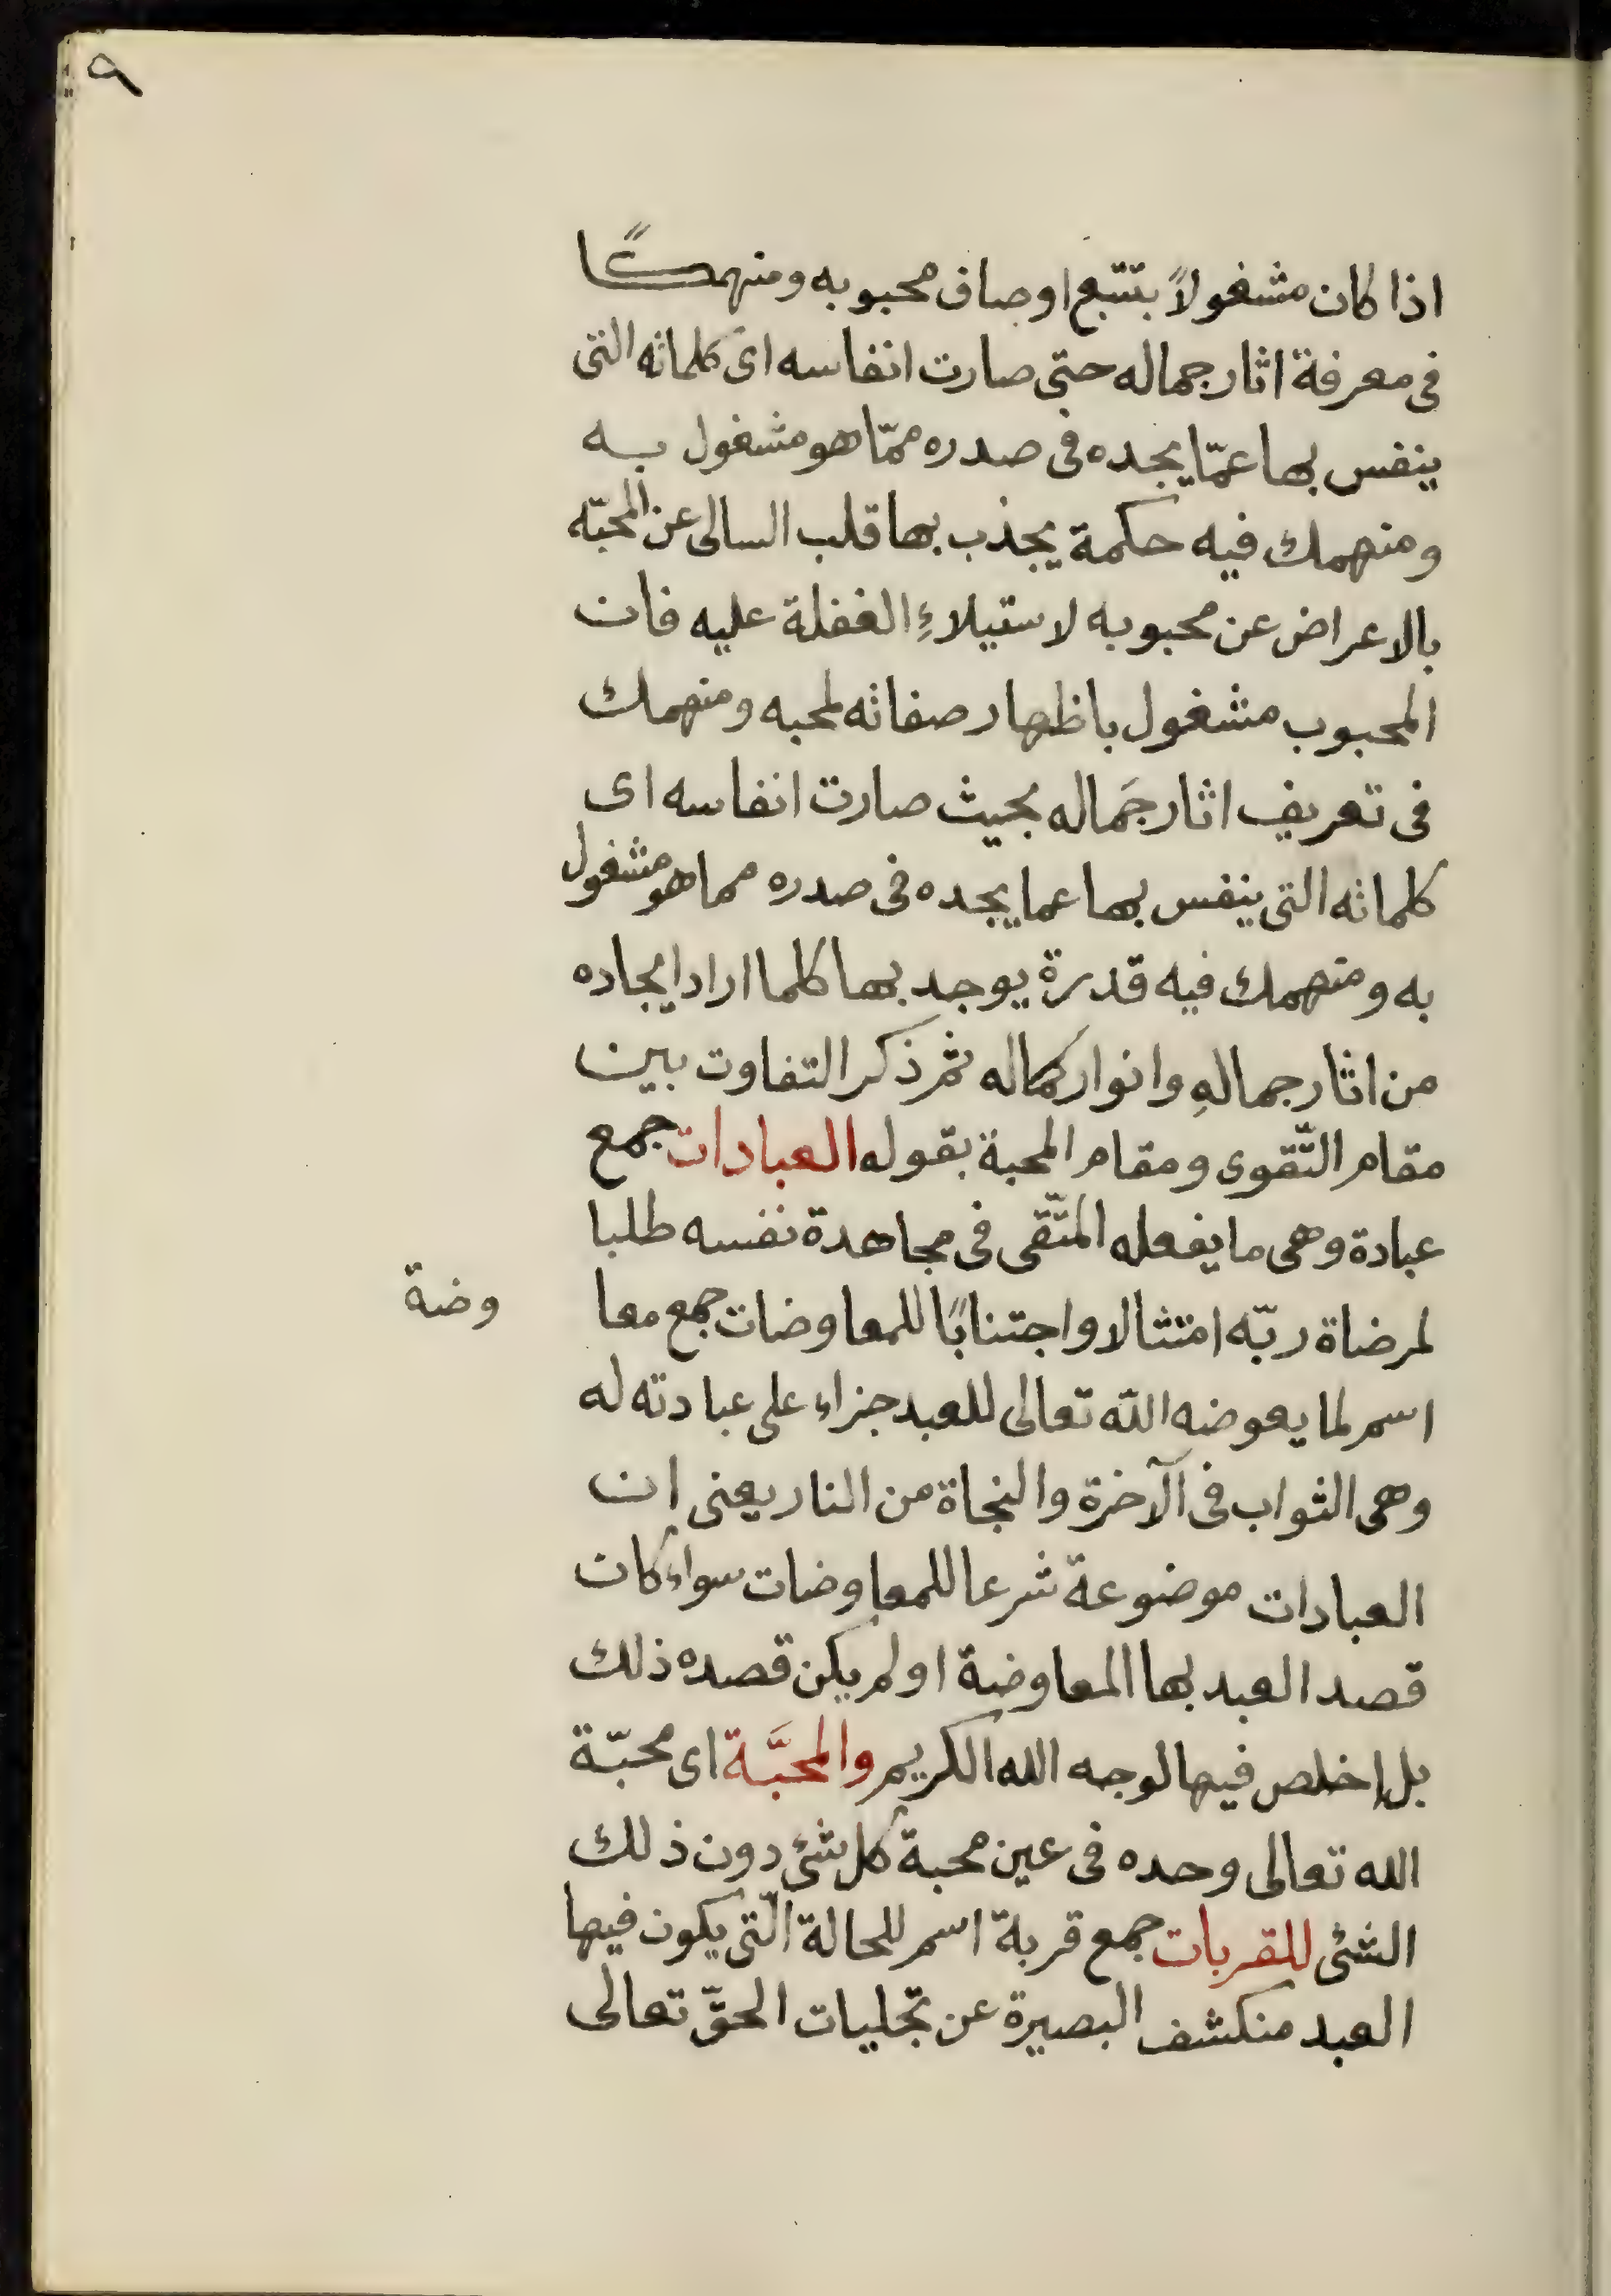 ٩
اذا كان مشغولاً بتتبع اوصاف محبوبه ومنهمكًا
فى معرفة اثار جماله حتى صارت انفاسه اى كلماته التى
ينفس بها عمّا يجده فى صدره ممّا هو مشغول به
ومنهمك فيه حكمة يجذب بها قلب السالى عن المحبّه
بالاعراض عن محبوبه لاستيلاءِ الغفلة عليه فان
المحبوب مشغول باظهار صفاته لمحبه ومنهمك
فى تعريف اثار جَماله بحيث صارت انفاسه اى
كلماته التى ينفس بها عما يجده فى صدره مما هو مشغول
به ومنهمك فيه قدرة يوجد بها كلما اراد ايجاده
من اثار جمالهِ وانوار كماله ثم ذكر التفاوت بين
مقام التّقوى ومقام المحبة بقوله العبادات جمع
عبادة وهى ما يفعله المتّقى فى مجاهدة نفسه طلبا
لمرضاة ربّه امتثالا واجتنابًا للمعاوضات جمع معا وضة
اسم لما يعوضه الله تعالى للعبد جزاء على عبادته له
وهى الثواب فى الآخرة والنجاة من النار يعنى ان
العبادات موضوعة شرعا للمعاوضات سواء كان
قصد العبد بها المعاوضة او لم يكن قصده ذلك
بل إخلص فيها لوجه الله الكريم والمحبَّة اى محبّة
الله تعالى وحده فى عين محبة كل شئ دون ذلك
الشئ للقربات جمع قربة اسم للحالة الّتى يكون فيها
العبد منكشف البصيرة عن تجليات الحقّ تعالى